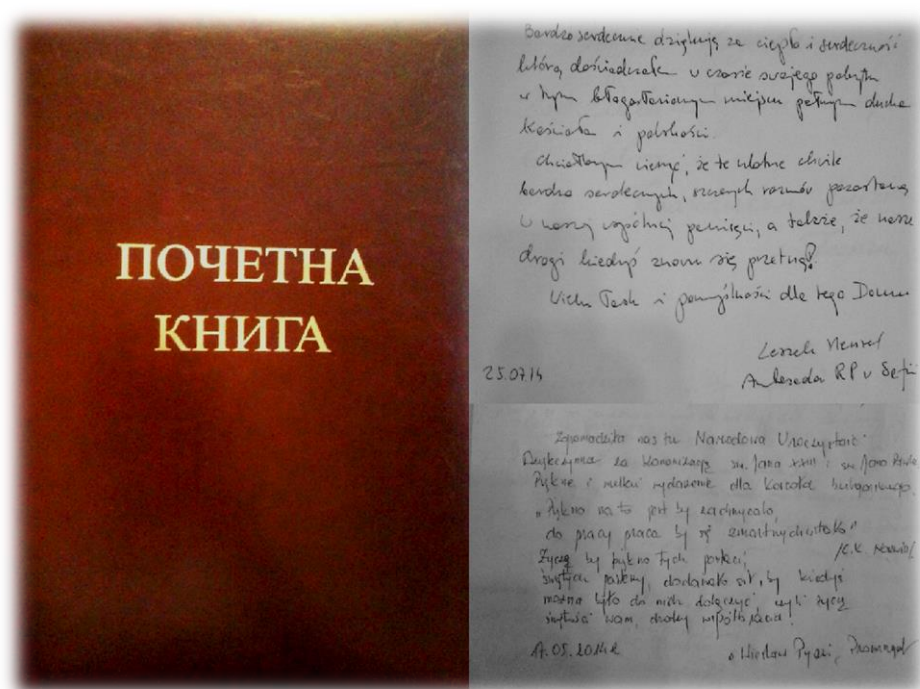 ПОЧЕТНА
КНИГА
Bardzo serdecznie dziękuję za ciepło i serdeczność
którą doświadczałem w czasie swojego pobytu
w tym błogosławionym miejscu pełnym ducha
Kościoła i polskości.
Chciałbym wierzyć, że te ulotne chwile
bardzo serdecznych, szczerych rozmów pozostaną
w naszej wspólnej pamięci, a także, że nasze
drogi kiedyś znowu się przetną!
Wielu łask i pomyślności dla tego Domu
Leszek Hensel
25.07.14
Ambasador RP w Sofii
Zgromadziła nas tu Narodowa Uroczystość
Dziękczynna za kanonizację św. Jana XXIII i św. Jana Pawła
Piękne i wielkie wydarzenie dla Kościoła bułgarskiego.
„Piękno na to jest by zachwycało
do pracy praca by się zmartwychwstało"
/C.K. Norwid/
Życzę by piękno tych postaci,
świętych pasterzy, dodawało sił, by kiedyś
można było do nich dołączyć, czyli życzę
świętości wam, drodzy współbracia!
17.05.2014r
Wiesław